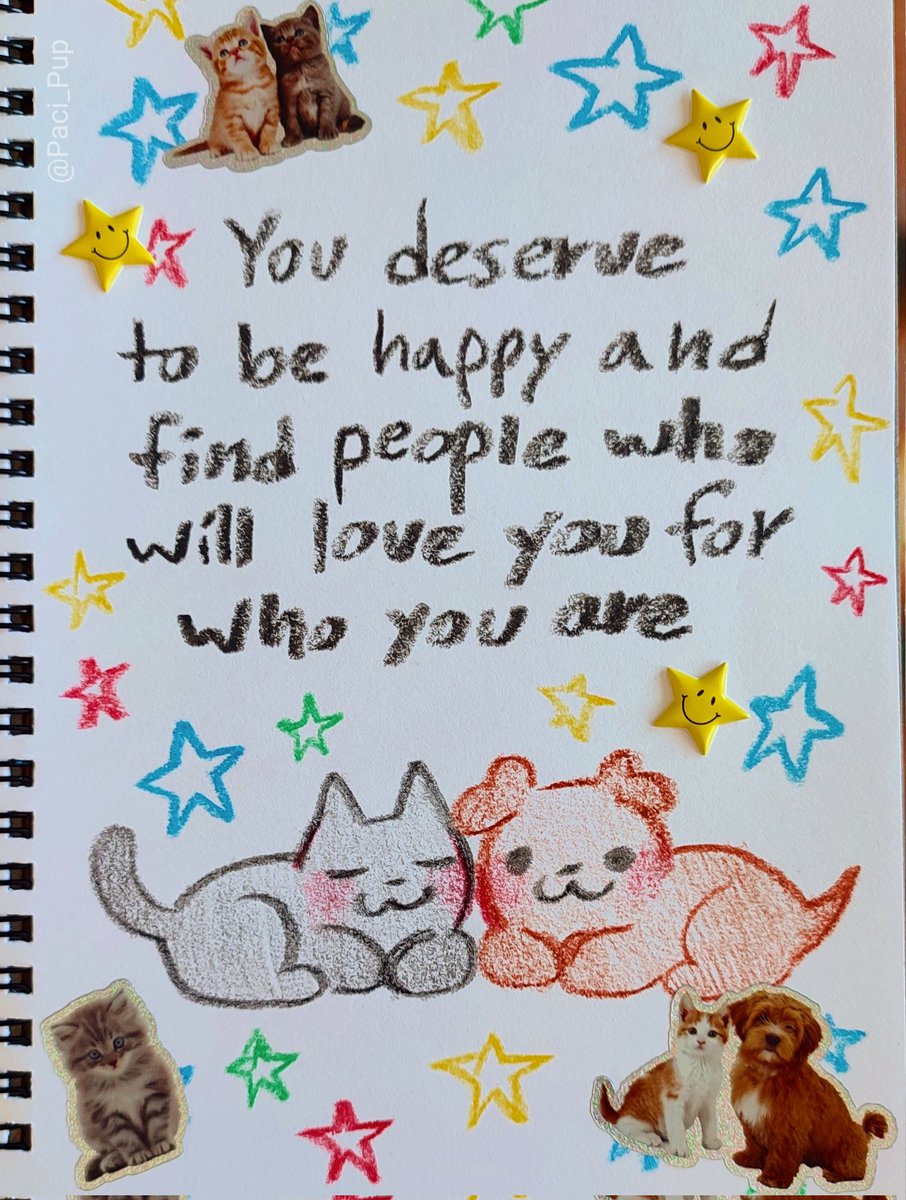 @Paci_Pup
You deserve
to be happy and
find people who
will love you for
who you are